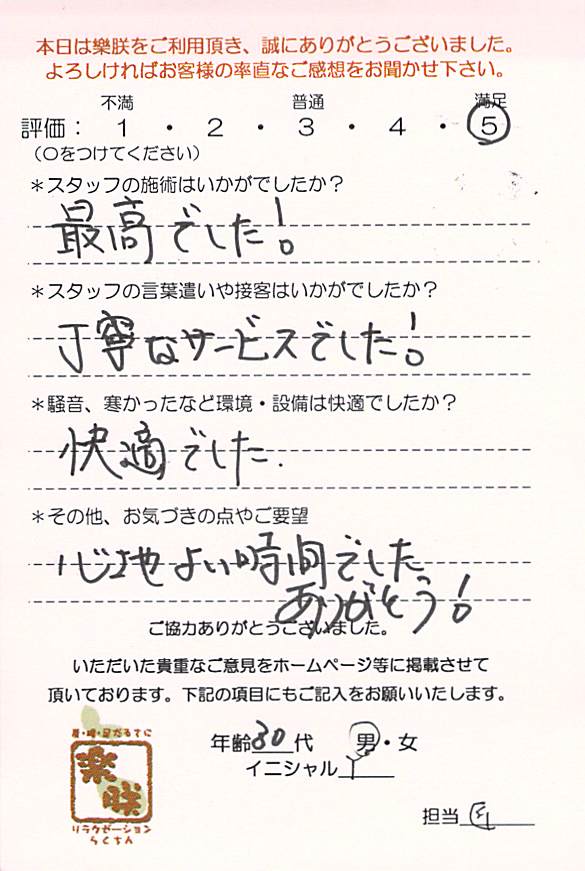 本日は樂朕をご利用頂き、誠にありがとうございました。
よろしければお客様の率直なご感想をお聞かせ下さい。
不満 普通 満足
評価： 1 ・ 2 ・ 3 ・ 4 ・ 5
（○をつけてください）
＊スタッフの施術はいかがでしたか？
最高でした！
＊スタッフの言葉遣いや接客はいかがでしたか？
丁寧なサービスでした！
＊騒音、寒かったなど環境・設備は快適でしたか？
快適でした.
＊その他、お気づきの点やご要望
心地よい時間でした
ありがとう！
ご協力ありがとうございました。
いただいた貴重なご意見をホームページ等に掲載させて
頂いております。下記の項目にもご記入をお願いいたします。
年齢30代 男・女
イニシャル Y
担当
楽朕
リラクゼーション
らくちん